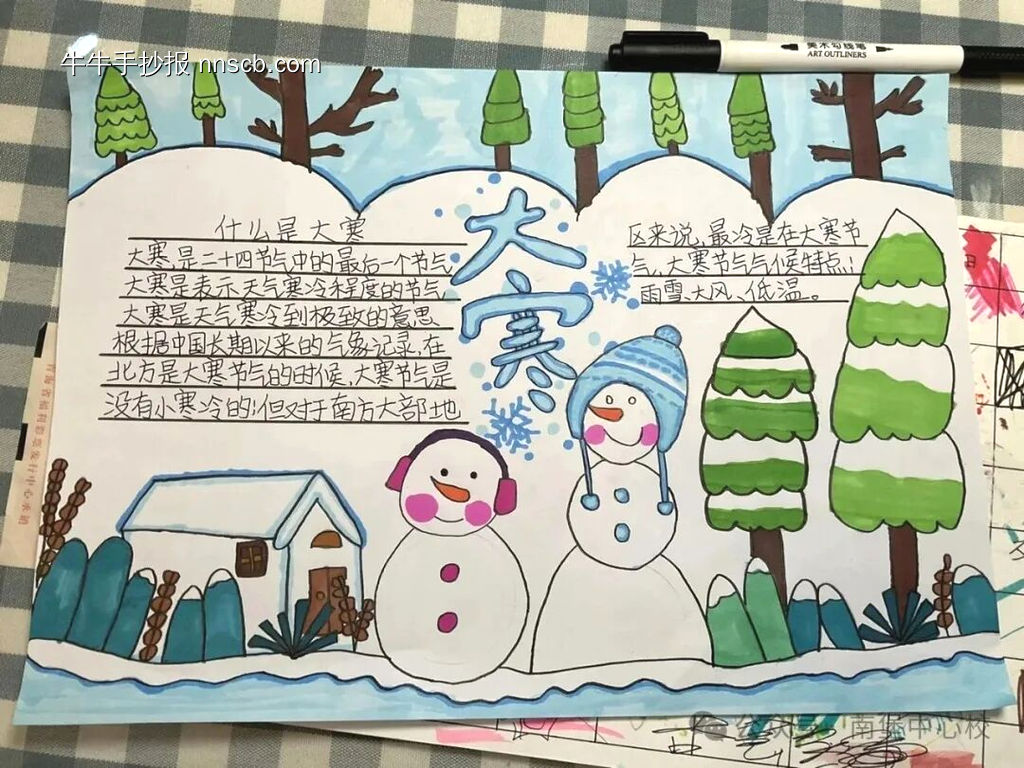 牛牛手抄报 nnscb.com
美术勾线笔
ART OUTLINERS
大寒
什么是大寒
大寒,是二十四节气中的最后一个节气,
大寒是表示天气寒冷程度的节气,
大寒是天气寒冷到极致的意思
根据中国长期以来的气象记录,在
北方是大寒节气的时候,大寒节气是
没有小寒冷的;但对于南方大部地
区来说,最冷是在大寒节
气,大寒节气气候特点:
雨雪、大风、低温。
公众号
南堡中心校